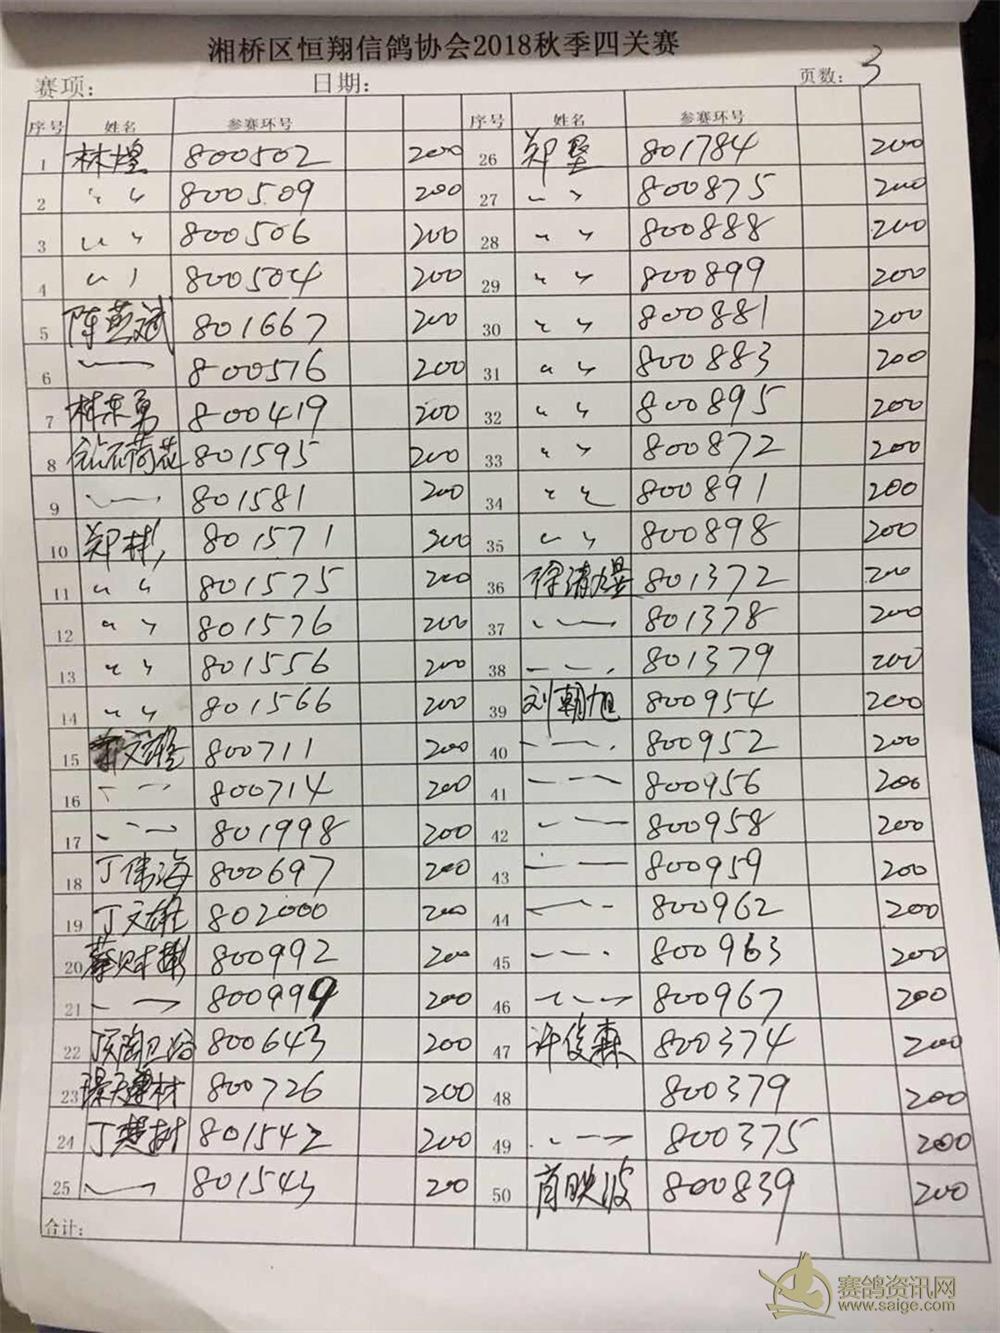 湘桥区恒翔信鸽协会2018秋季四关赛
赛项: 日期: 页数: 3
序号 姓名 参赛环号 序号 姓名 参赛环号
1 林煌 800502 200 26 郑坚 801784 200
2 〃 800509 200 27 〃 800875 200
3 〃 800506 200 28 〃 800888 200
4 〃 800504 200 29 〃 800899 200
5 陈燕斌 801667 200 30 〃 800881 200
6 — 800576 200 31 〃 800883 200
7 林东勇 800419 200 32 〃 800895 200
8 钻石荷花 801595 200 33 〃 800872 200
9 — 801581 200 34 〃 800891 200
10 郑彬 801571 200 35 〃 800898 200
11 〃 801575 200 36 徐清 801372 200
12 〃 801576 200 37 — 801378 200
13 〃 801556 200 38 — 801379 200
14 〃 801566 200 39 刘朝旭 800954 200
15 文雄 800711 200 40 — 800952 200
16 — 800714 200 41 — 800956 200
17 — 801998 200 42 — 800958 200
18 丁伟海 800697 200 43 — 800959 200
19 丁文雄 802000 200 44 — 800962 200
20 蔡财彬 800992 200 45 — 800963 200
21 — 800999 200 46 — 800967 200
22 陶卫浴 800643 200 47 许俊森 800374 200
23 建材 800726 200 48 800379 200
24 丁楚树 801542 200 49 — 800375 200
25 — 801543 200 50 肖映波 800839 200
合计:
赛鸽资讯网
www.saige.com